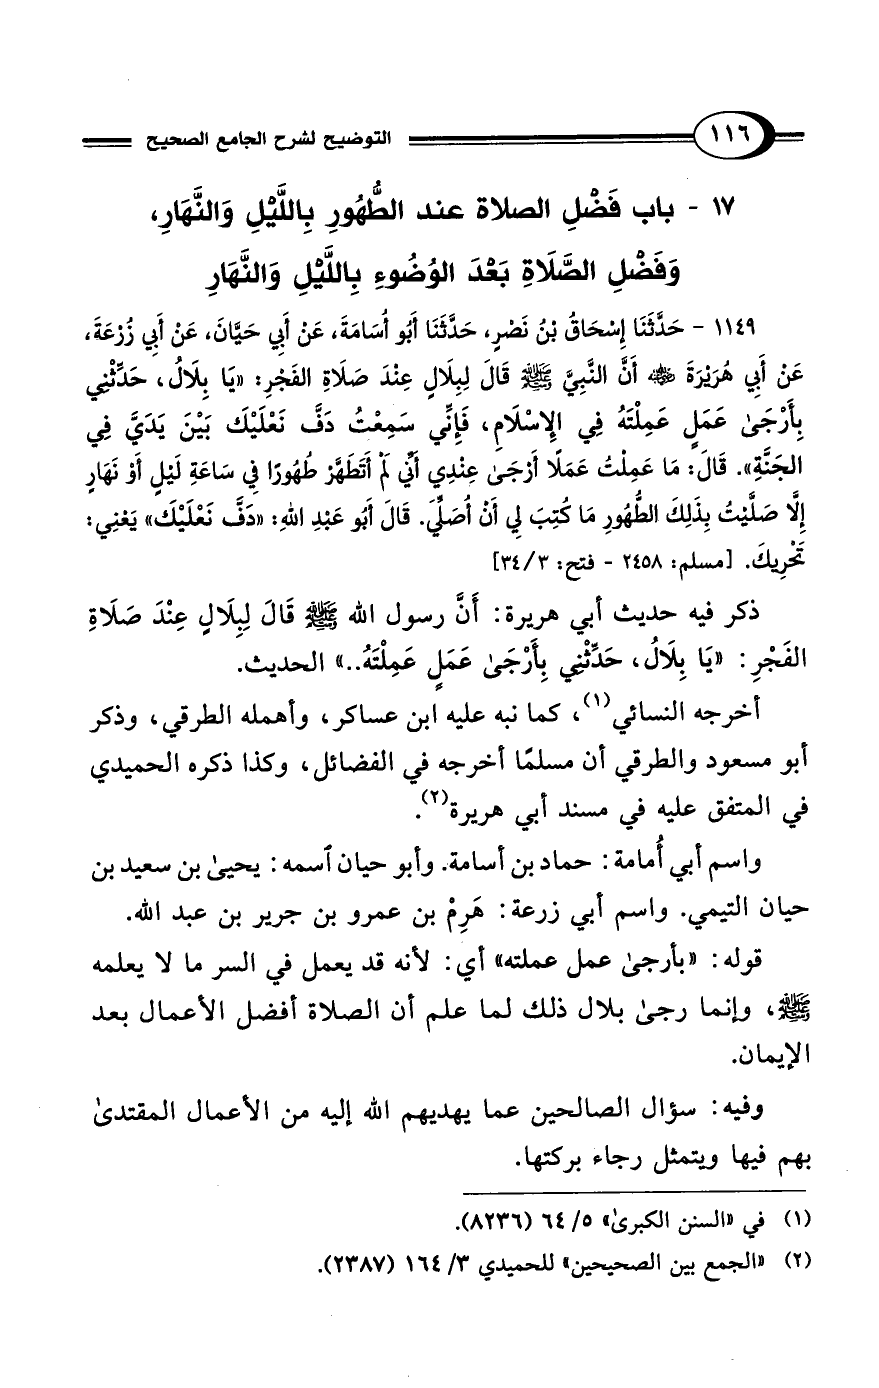 ١١٦ التوضيح لشرح الجامع الصحيح
١٧ - باب فَضْلِ الصلاة عند الطُّهُورِ بِاللَّيْلِ وَالنَّهَارِ،
وَفَضْلِ الصَّلَاةِ بَعْدَ الوُضُوءِ بِاللَّيْلِ وَالنَّهَارِ
١١٤٩ - حَدَّثَنَا إِسْحَاقُ بْنُ نَصْرٍ، حَدَّثَنَا أَبُو أُسَامَةَ، عَنْ أَبِي حَيَّانَ، عَنْ أَبِي زُرْعَةَ،
عَنْ أَبِي هُرَيْرَةَ ﵁ أَنَّ النَّبِيَّ ﷺ قَالَ لِبِلَالٍ عِنْدَ صَلَاةِ الفَجْرِ: «يَا بِلَالُ، حَدِّثْنِي
بِأَرْجَىٰ عَمَلٍ عَمِلْتَهُ فِي الإِسْلَامِ، فَإِنِّي سَمِعْتُ دَفَّ نَعْلَيْكَ بَيْنَ يَدَيَّ فِي
الجَنَّةِ». قَالَ: مَا عَمِلْتُ عَمَلًا أَرْجَىٰ عِنْدِي أَنِّي لَمْ أَتَطَهَّرْ طُهُورًا فِي سَاعَةِ لَيْلٍ أَوْ نَهَارٍ
إِلَّا صَلَّيْتُ بِذَلِكَ الطُّهُورِ مَا كُتِبَ لِي أَنْ أُصَلِّيَ. قَالَ أَبُو عَبْدِ اللهِ: «دَفَّ نَعْلَيْكَ» يَعْنِي:
تَحْرِيكَ. [مسلم: ٢٤٥٨ - فتح: ٣/ ٣٤]
ذكر فيه حديث أبي هريرة: أَنَّ رسول الله ﷺ قَالَ لِبِلَالٍ عِنْدَ صَلَاةِ
الفَجْرِ: «يَا بِلَالُ، حَدِّثْنِي بِأَرْجَىٰ عَمَلٍ عَمِلْتَهُ..» الحديث.
أخرجه النسائي(١)، كما نبه عليه ابن عساكر، وأهمله الطرقي، وذكر
أبو مسعود والطرقي أن مسلمًا أخرجه في الفضائل، وكذا ذكره الحميدي
في المتفق عليه في مسند أبي هريرة(٢).
واسم أبي أُمامة: حماد بن أسامة. وأبو حيان ٱسمه: يحيىٰ بن سعيد بن
حيان التيمي. واسم أبي زرعة: هَرِمُ بن عمرو بن جرير بن عبد الله.
قوله: «بأرجىٰ عمل عملته» أي: لأنه قد يعمل في السر ما لا يعلمه
ﷺ، وإنما رجىٰ بلال ذلك لما علم أن الصلاة أفضل الأعمال بعد
الإيمان.
وفيه: سؤال الصالحين عما يهديهم الله إليه من الأعمال المقتدىٰ
بهم فيها ويتمثل رجاء بركتها.
(١) في «السنن الكبرىٰ» ٥/ ٦٤ (٨٢٣٦).
(٢) «الجمع بين الصحيحين» للحميدي ٣/ ١٦٤ (٢٣٨٧).